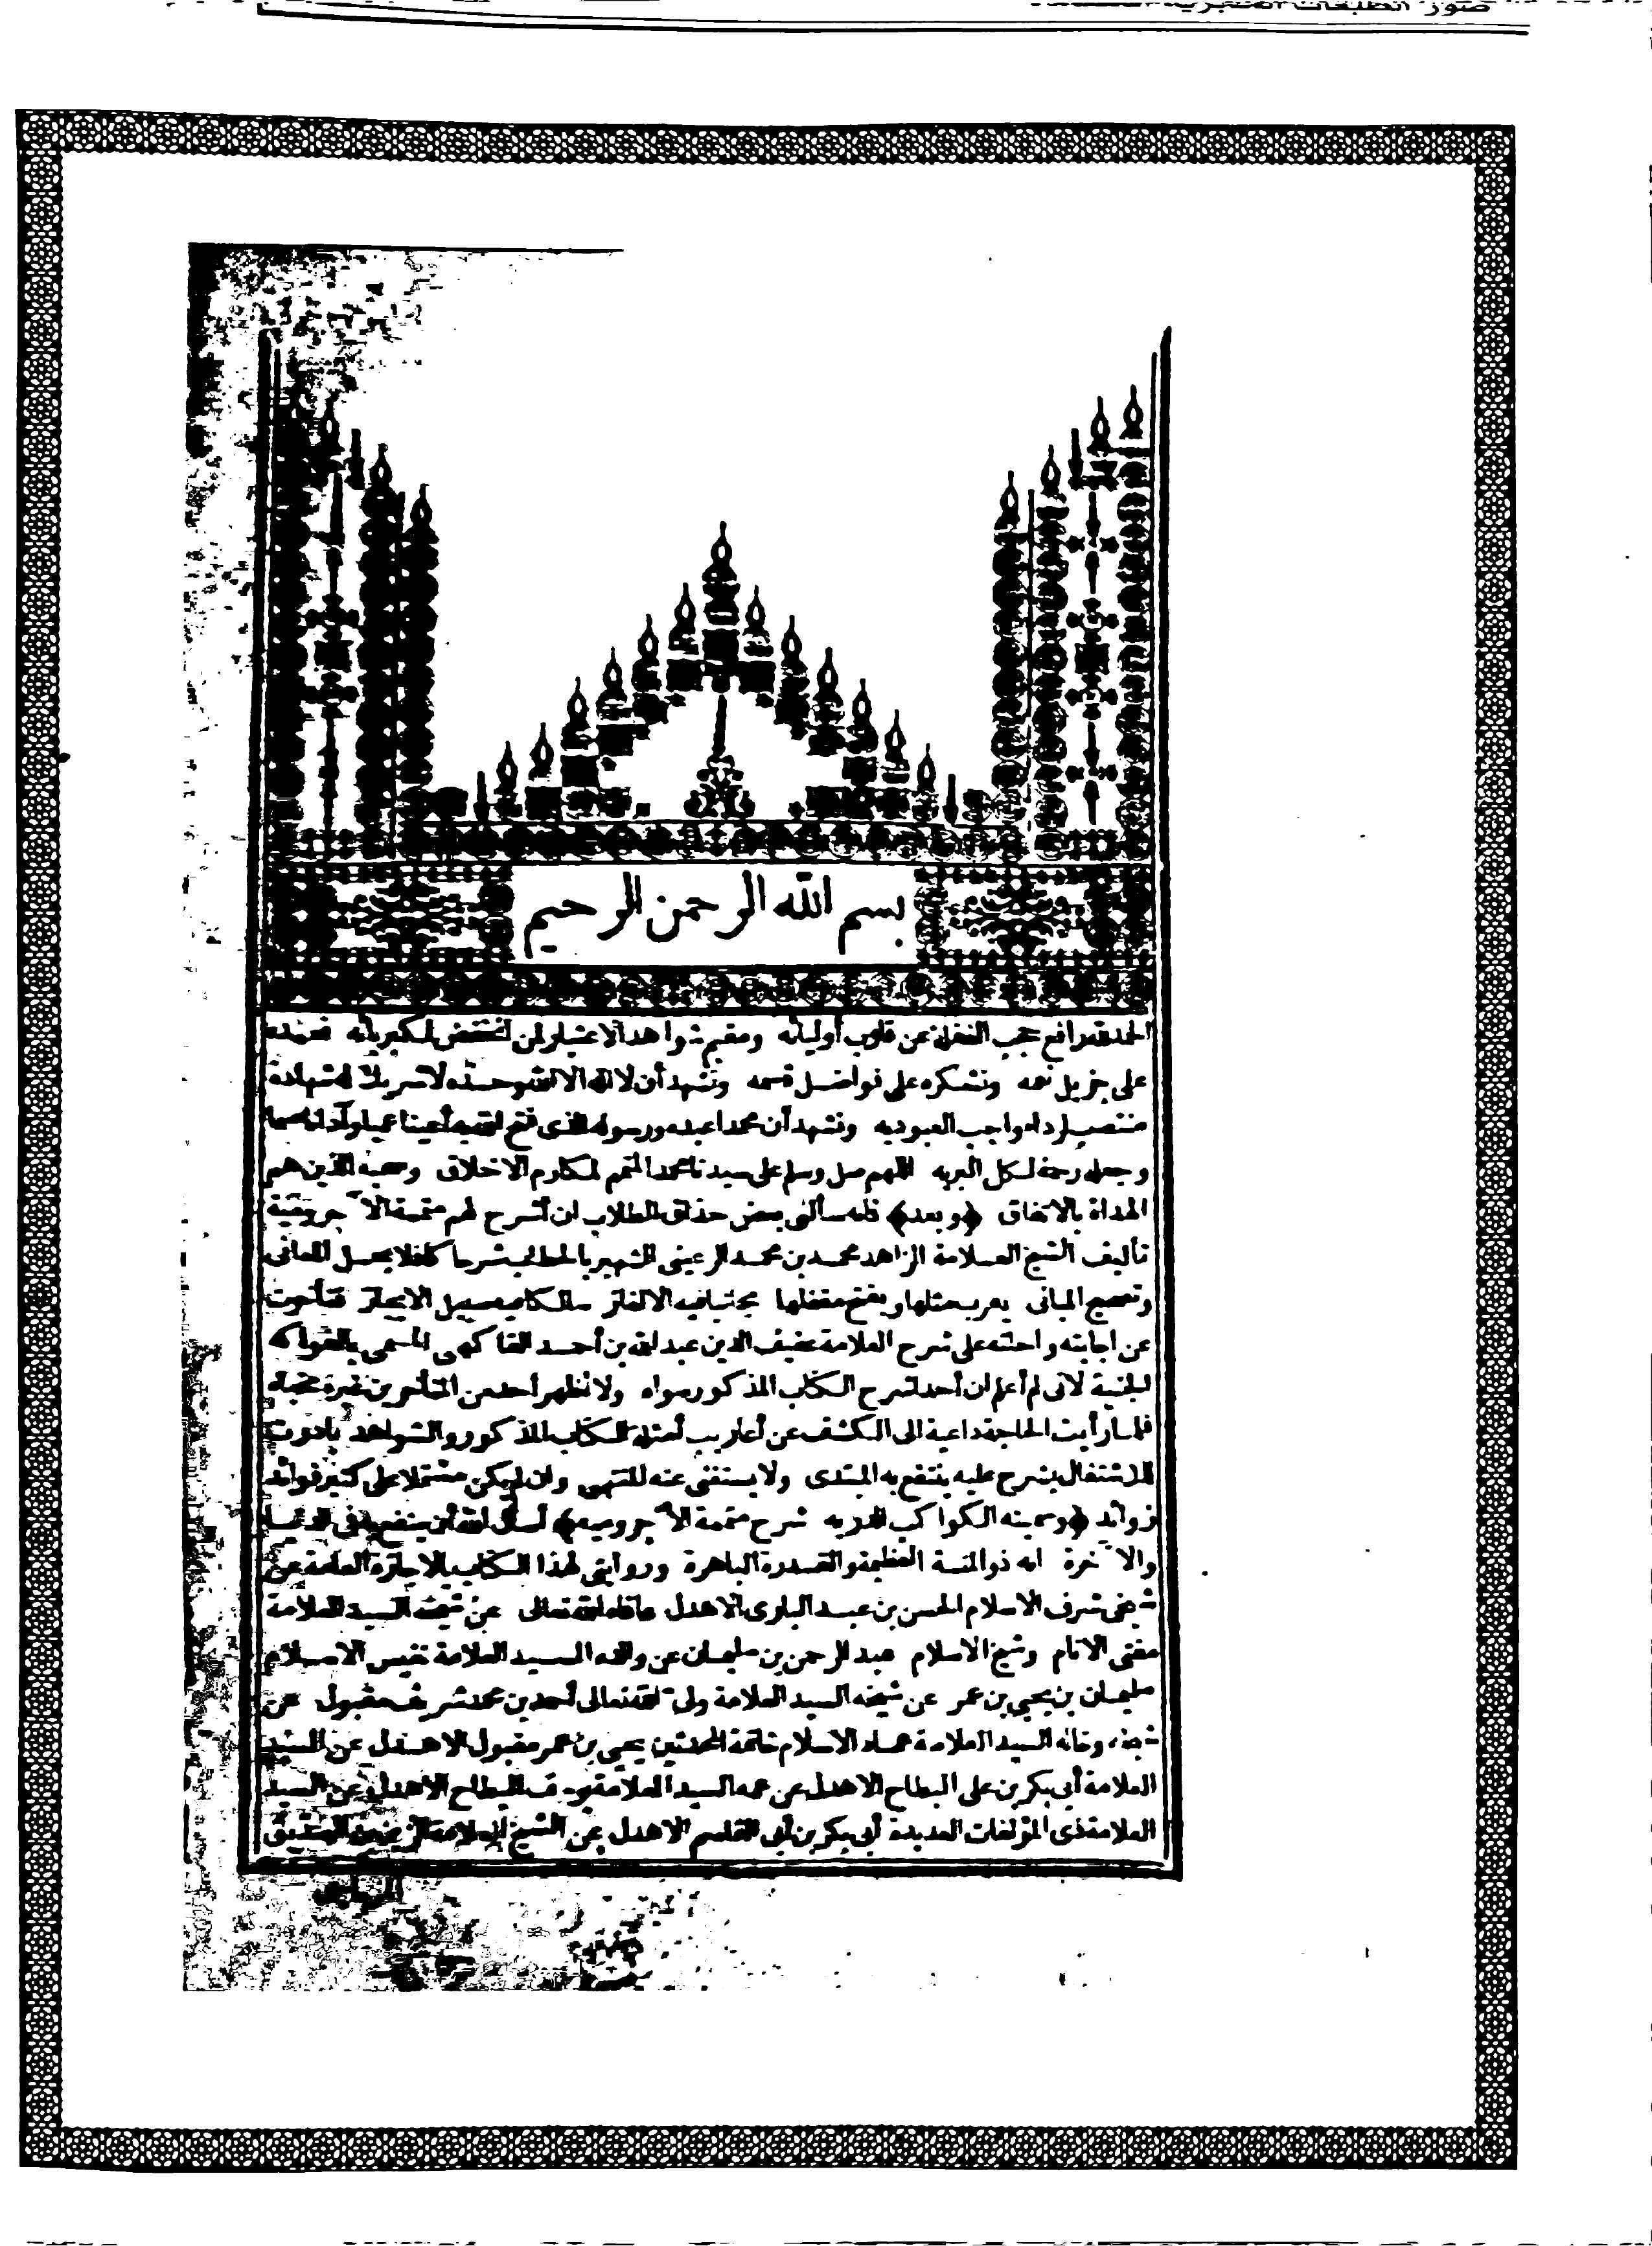 بسم الله الرحمن الرحيم
الحمد لله رافع حجب الغفلة عن قلوب أوليائه ومقيم شواهد الاعتبار لمن لكبريائه نحمده
على جزيل نعمه ونشكره على فواضل قسمه ونشهد أن لا اله الا الله وحده لا شريك له شهادة
واجب العبوديه ونشهد أن محمدا عبده ورسوله الذى فتح الله به أعينا عميا وآذانا صما
وجعله رحمة لكل البريه اللهم صل وسلم على سيدنا محمد المتمم لمكارم الاخلاق وصحبه الذين هم
الهداة بالاتفاق ﴿وبعد﴾ فانه سألنى بعض حذاق الطلاب ان أشرح لهم متممة الآجرومية
تأليف الشيخ العلامة الزاهد محمد بن محمد الرعينى الشهير بالحطاب شرحا كافلا بحل المعانى
وتصحيح المبانى يعرب مثلها ويفتح مقفلها مجتنبا فيه الالغاز سالكا فيه سبيل الايجاز فتأخرت
عن اجابته واحلته على شرح العلامة عفيف الدين عبد الله بن أحمد الفاكهى المسمى بالفواكه
الجنية لانى لم أعلم ان أحدا شرح الكتاب المذكور سواه ولا أظهر أحد من المتأخرين
فلما رأيت الحاجة داعية الى الكشف عن أعاريب أمثلة الكتاب المذكور والشواهد بادرت
للاشتغال بشرح عليه ينتفع به المبتدى ولا يستغنى عنه المنتهى وان لم يكن مشتملا على كثير فوائد
زوائد ﴿وسميته الكواكب الدريه شرح متممة الآجروميه﴾ أسأل الله أن ينفع به فى الدنيا
والآخرة انه ذو المنة العظيمة والقدرة الباهرة وروايتى لهذا الكتاب بالاجازة العامة عن
شيخى شرف الاسلام الحسن بن عبد البارى الاهدل عافاه الله تعالى عن شيخه السيد العلامة
مفتى الانام وشيخ الاسلام عبد الرحمن بن سليمان عن والده السيد العلامة نفيس الاسلام
سليمان بن يحيى بن عمر عن شيخه السيد العلامة ولى الله تعالى أحمد بن محمد شريف مقبول عن
شيخه وخاله السيد العلامة عماد الاسلام خاتمة المحدثين يحيى بن عمر مقبول الاهدل عن السيد
العلامة أبى بكر بن على البطاح الاهدل عن عمه السيد العلامة يوسف البطاح الاهدل عن السيد
العلامة ذى المؤلفات العديدة أبى بكر بن أبى القاسم الاهدل عن الشيخ العلامة الصديق